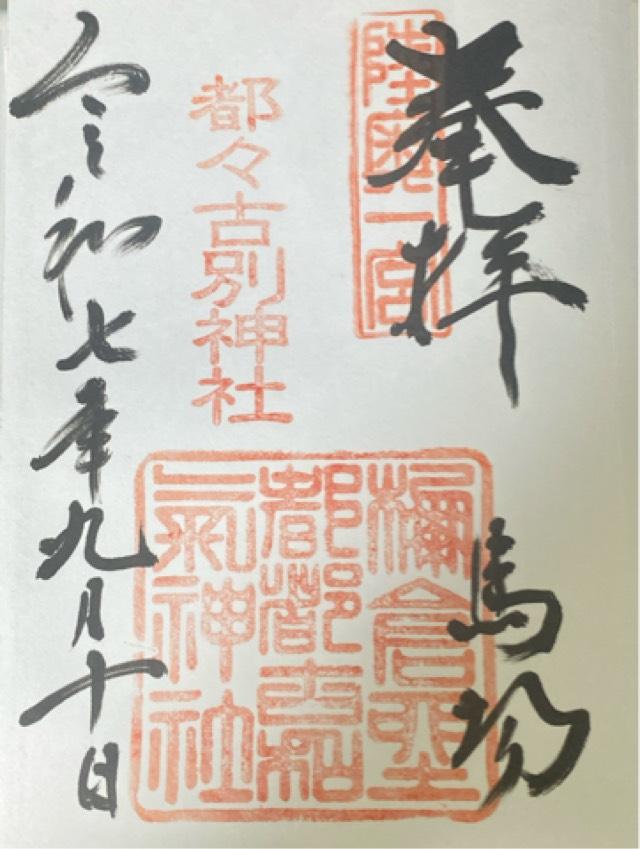 奉拝
陸奥一宮
馬場
都々古別神社
都都古和
氣神社
令和七年九月十日